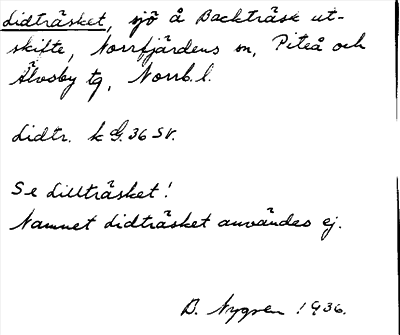 Lidträsket, sjö å Backträsk ut-
skifte, Norrfjärdens sn, Piteå och
Älvsby tg, Norrb. l.
Lidtr. k G. 36 SV.
Se Lillträsket!
Namnet Lidträsket användes ej.
B. Nygren 1936.